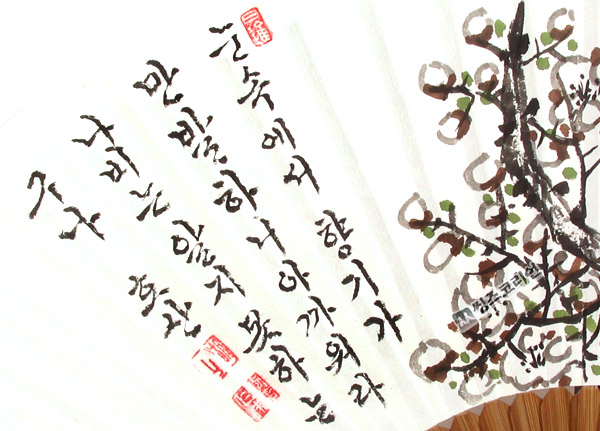 눈속에서 향기가
만발하니 아까워라
나비는 알지 못하는
구나